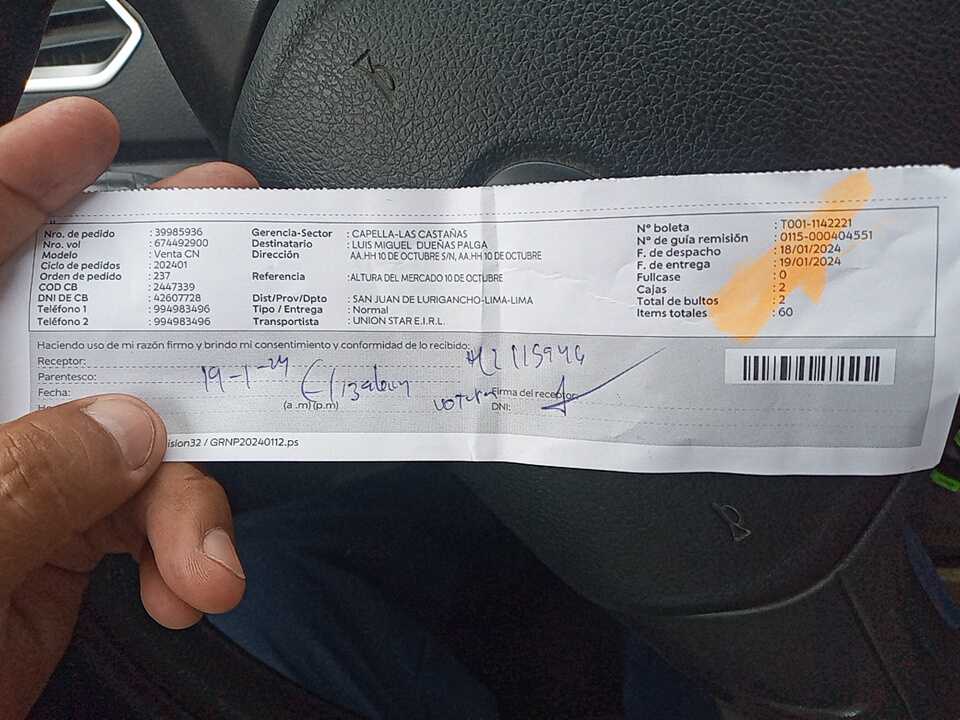 Nro. de pedido : 39985936
Nro. vol : 674492900
Modelo : Venta CN
Ciclo de pedidos : 202401
Orden de pedido : 237
COD CB : 2447339
DNI DE CB : 42607728
Teléfono 1 : 994983496
Teléfono 2 : 994983496
Gerencia-Sector : CAPELLA-LAS CASTAÑAS
Destinatario : LUIS MIGUEL DUEÑAS PALGA
Dirección AA.HH 10 DE OCTUBRE S/N, AA.HH 10 DE OCTUBRE
Referencia :ALTURA DEL MERCADO 10 DE OCTUBRE
Dist/Prov/Dpto : SAN JUAN DE LURIGANCHO-LIMA-LIMA
Tipo / Entrega : Normal
Transportista : UNION STAR E.I.R.L.
N° boleta : T001-1142221
N° de guía remisión : 0115-000404551
F. de despacho : 18/01/2024
F. de entrega : 19/01/2024
Fullcase : 0
Cajas : 2
Total de bultos : 2
Items totales : 60
Haciendo uso de mi razón firmo y brindo mi consentimiento y conformidad de lo recibido:
Receptor:
Parentesco:
Fecha: 19-1-24
(a .m) (p.m)
Firma del receptor:
DNI:
ision32 / GRNP20240112.ps